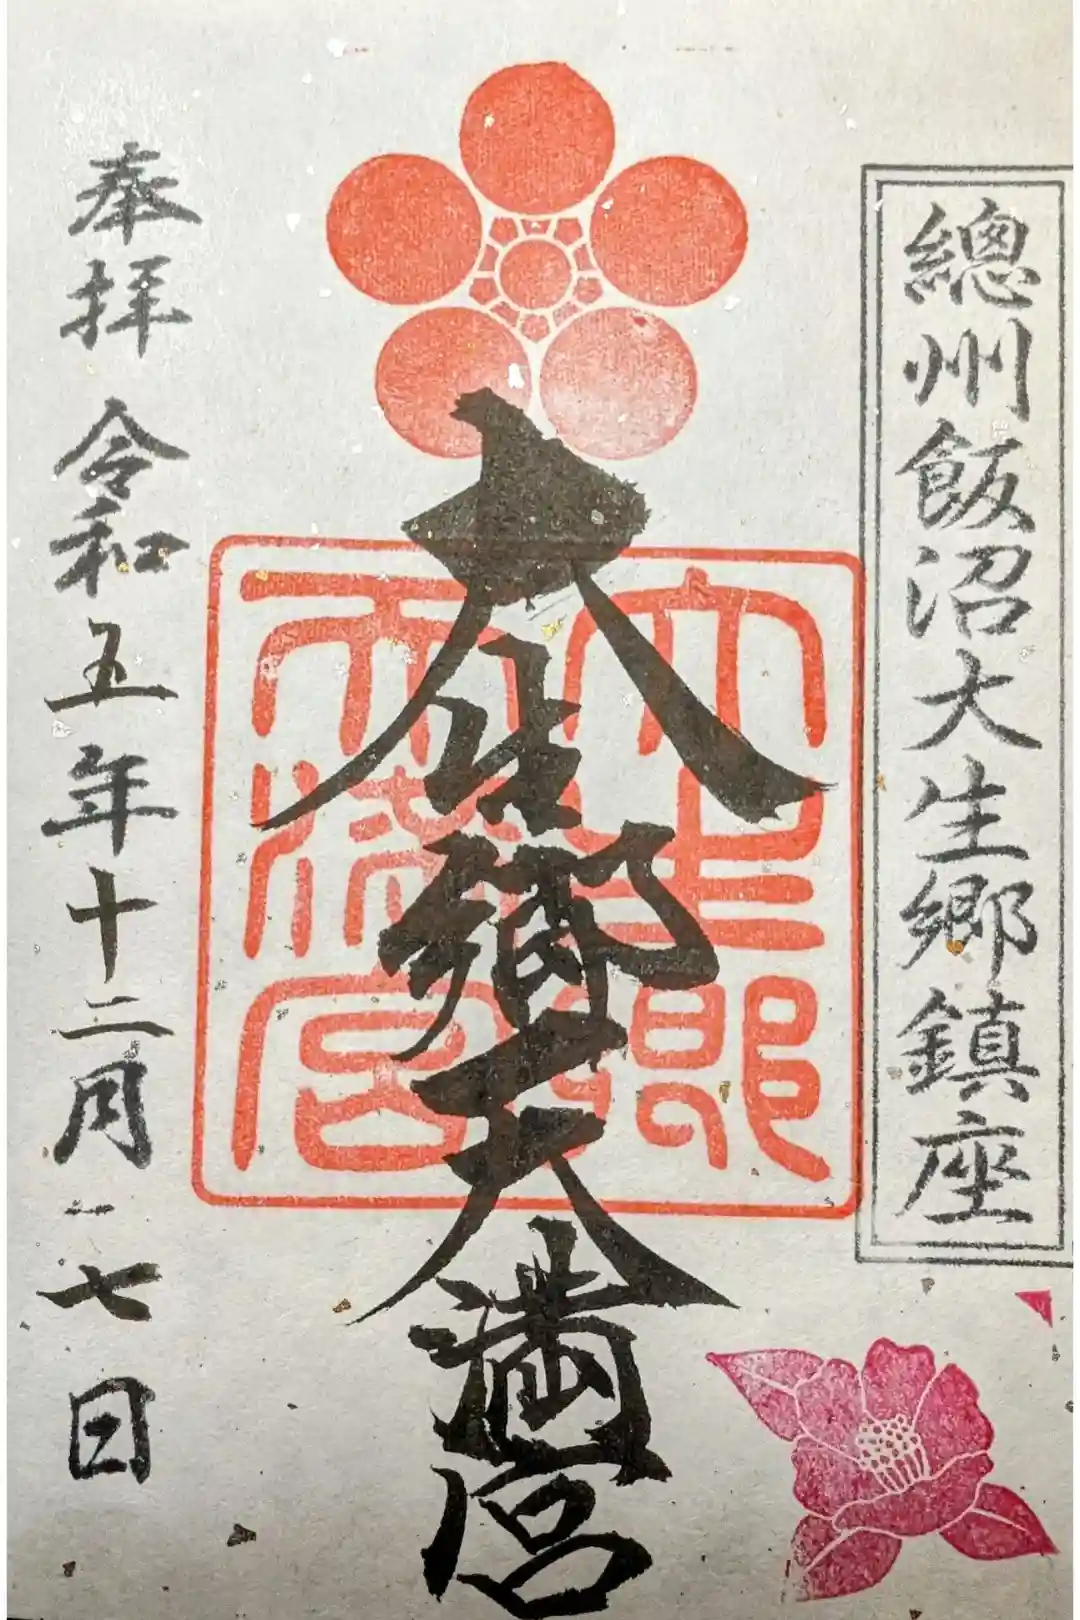 總州飯沼大生郷鎮座
大生郷天満宮
大生郷
天満宮
奉拝 令和五年十二月一七日